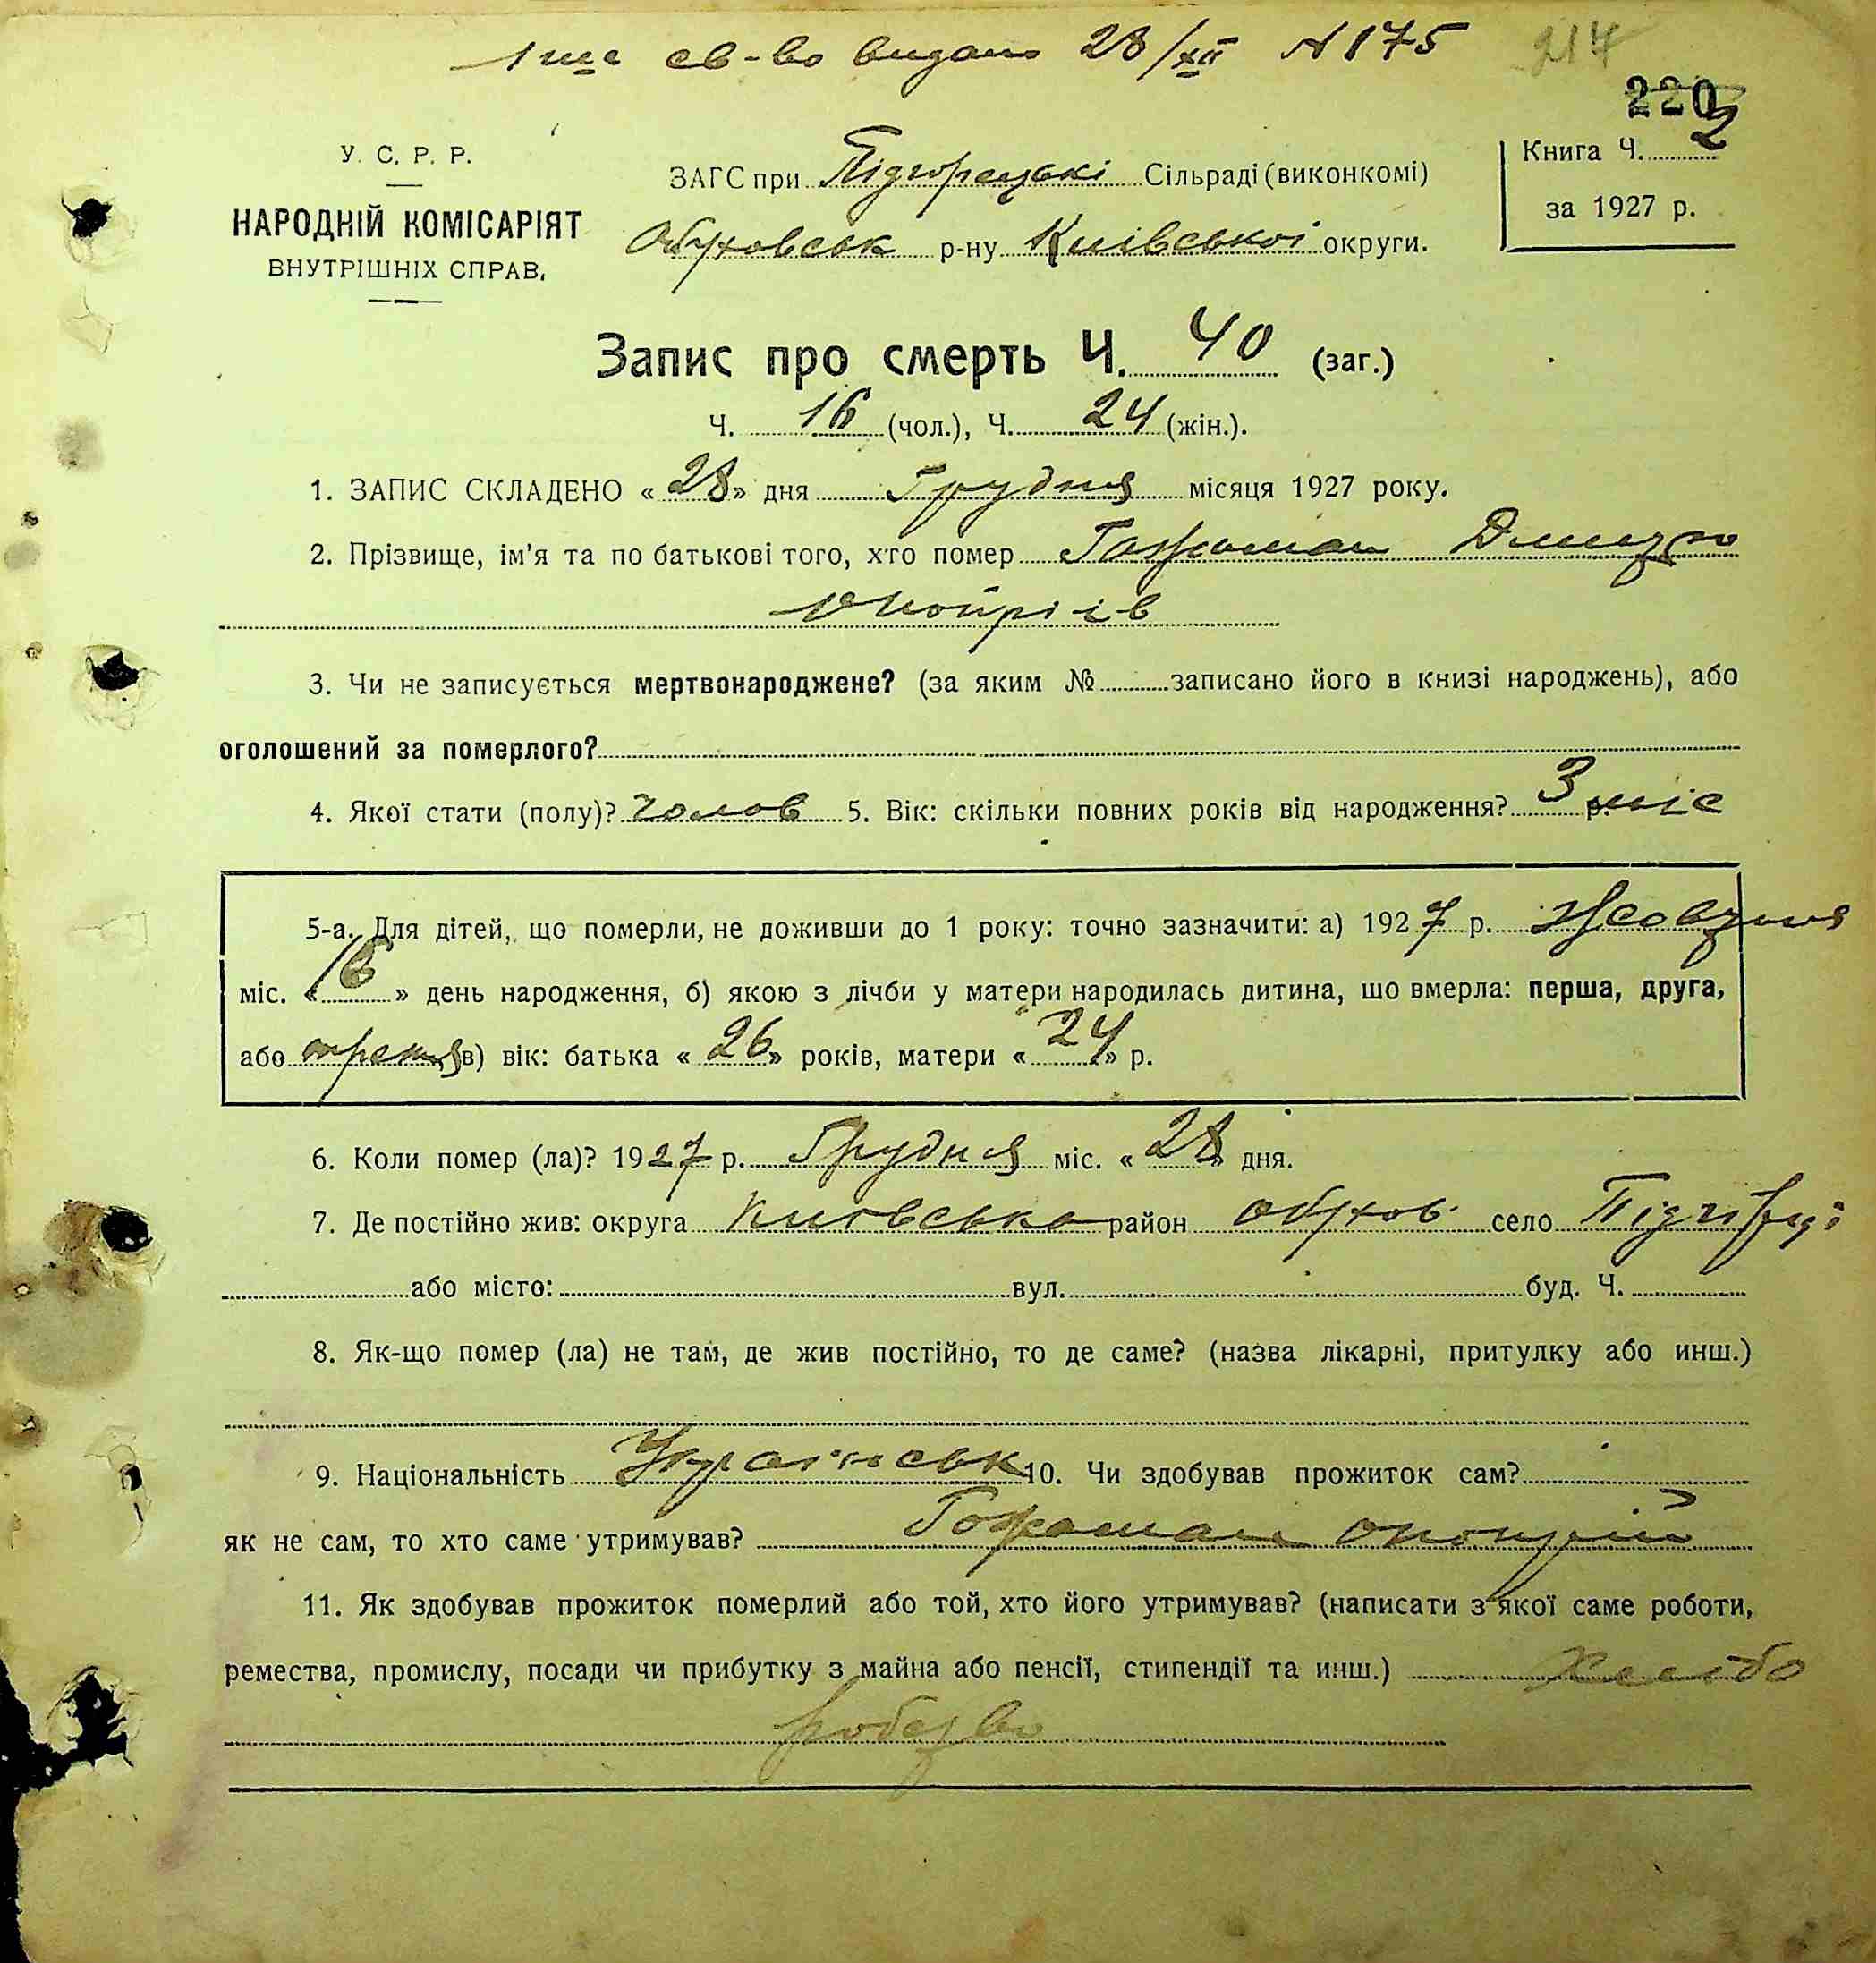 св-во видано 28/XII № 175
217
220
У. С. Р. Р.
НАРОДНІЙ КОМІСАРІЯТ
ВНУТРІШНІХ СПРАВ.
ЗАГС при Підгорецькі Сільраді (виконкомі)
Обуховськ р-ну Київської округи.
Книга Ч. 2
за 1927 р.
Запис про смерть Ч. 40 (заг.)
Ч. 16 (чол.), Ч. 24 (жін.).
1. ЗАПИС СКЛАДЕНО « 28 » дня Грудня місяця 1927 року.
2. Прізвище, ім'я та по батькові того, хто помер Дмитро
3. Чи не записується мертвонароджене? (за яким № записано його в книзі народжень), або
оголошений за померлого?
4. Якої стати (полу)? чолов 5. Вік: скільки повних років від народження? 3 р. міс
5-а. Для дітей, що померли, не доживши до 1 року: точно зазначити: а) 1927 р. Жовтня
міс. « 16 » день народження, б) якою з лічби у матери народилась дитина, що вмерла: перша, друга,
або третя в) вік: батька « 26 » років, матери « 24 » р.
6. Коли помер (ла)? 1927 р. Грудня міс. « 28 » дня.
7. Де постійно жив: округа Київська район обухов. село Підгірці
або місто: вул. буд. Ч.
8. Як-що помер (ла) не там, де жив постійно, то де саме? (назва лікарні, притулку або инш.)
9. Національність Українськ 10. Чи здобував прожиток сам?
як не сам, то хто саме утримував?
11. Як здобував прожиток померлий або той, хто його утримував? (написати з якої саме роботи,
ремества, промислу, посади чи прибутку з майна або пенсії, стипендії та инш.) Хлібо
робство